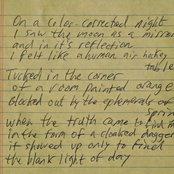 On a color-corrected night
I saw the moon as a mirror
and in its reflection
I felt like a human air hockey
table
Tucked in the corner
of a room painted orange
blocked out by the ephemerals of
spring
when the truth came to find me
In the form of a cloaked dagger
it showed up only to find
the blank light of day